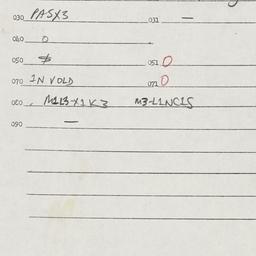 030 PASX3 031 —
040 0
050 $ 051 0
070 IN VOLD 071 0
080 M1L3-X1K3 M3-L1NC1S
090 —